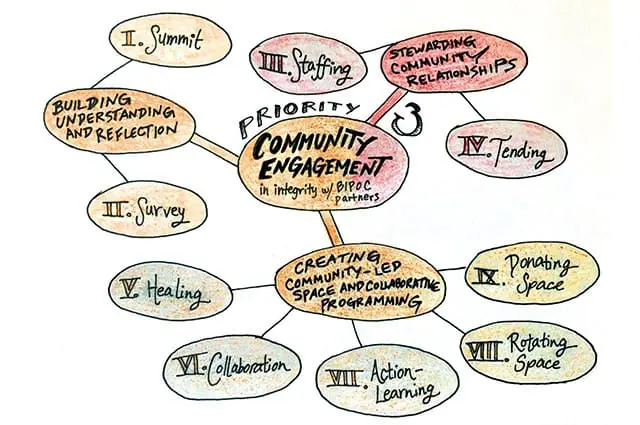 I. Summit
III. Staffing
STEWARDING
COMMUNITY
RELATIONSHIPS
BUILDING
UNDERSTANDING
AND REFLECTION
PRIORITY 3
COMMUNITY
ENGAGEMENT
in integrity w/ BIPOC
partners
IV. Tending
II. Survey
CREATING
COMMUNITY-LED
SPACE AND COLLABORATIVE
PROGRAMMING
V. Healing
IX. Donating
Space
VI. Collaboration
VII. Action-
Learning
VIII. Rotating
Space